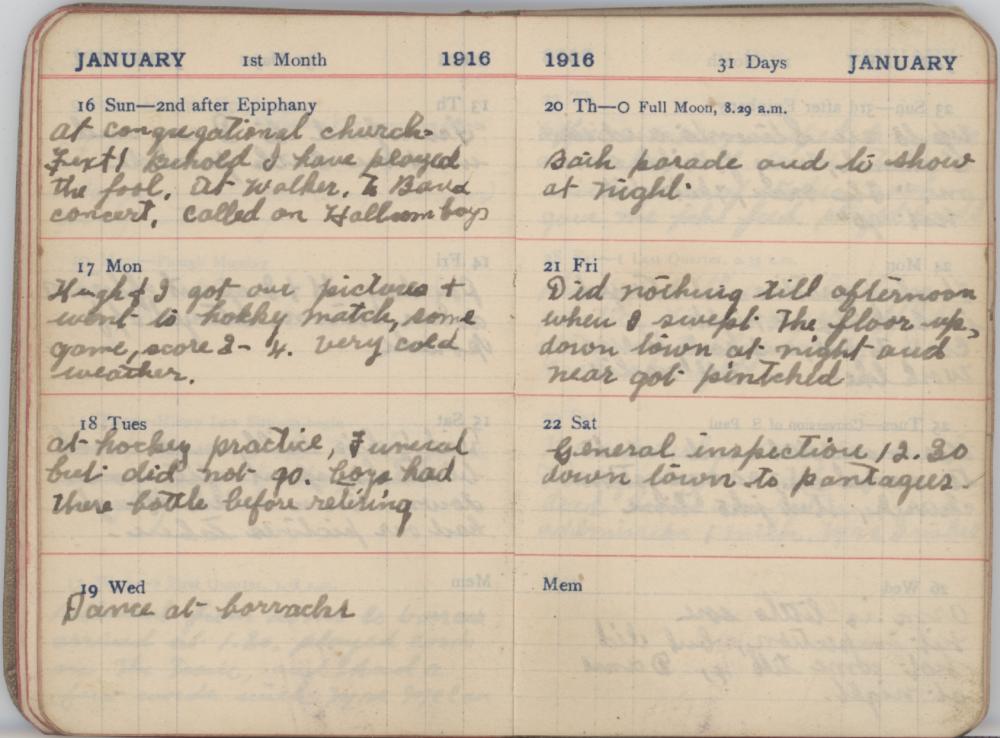 JANUARY 1st Month 1916
16 Sun—2nd after Epiphany
at congregational church.
Text! Behold I have played
the fool. at Walker. To Band
concert, called on boys
17 Mon
Hugh & I got our pictures +
went to hokky match, some
game, score 3 - 4. very cold
weather.
18 Tues
at hockey practice, Funeral
but did not go. Boys had
there battle before retiring
19 Wed
Dance at barracks
1916 31 Days JANUARY
20 Th—O Full Moon, 8.29 a.m.
Bath parade and to show
at night.
21 Fri
Did nothing till afternoon
when I swept the floor up,
down town at night and
near got pintched
22 Sat
General inspection 12.30
down town to pantages.
Mem